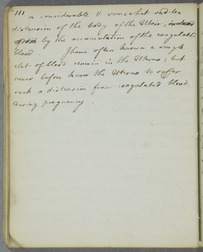 111
a considerable & somewhat sudden
distension of the body of the Uterus,
by the accumulation of the coagulated
blood I have often known a single
clot of blood remain in the Uterus; but
never before knew the Uterus to suffer
such a distension from coagulated blood.
during pregnancy.